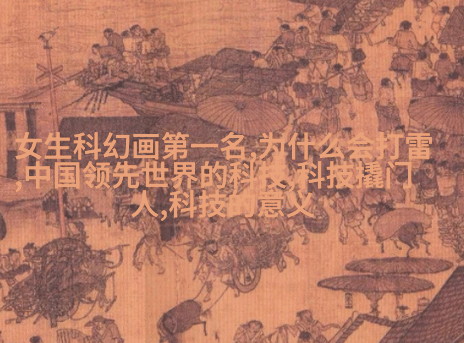 女生科幻画第一名,为什么会打雷
,中国领先世界的科技,科技撬门
人,科技的意义